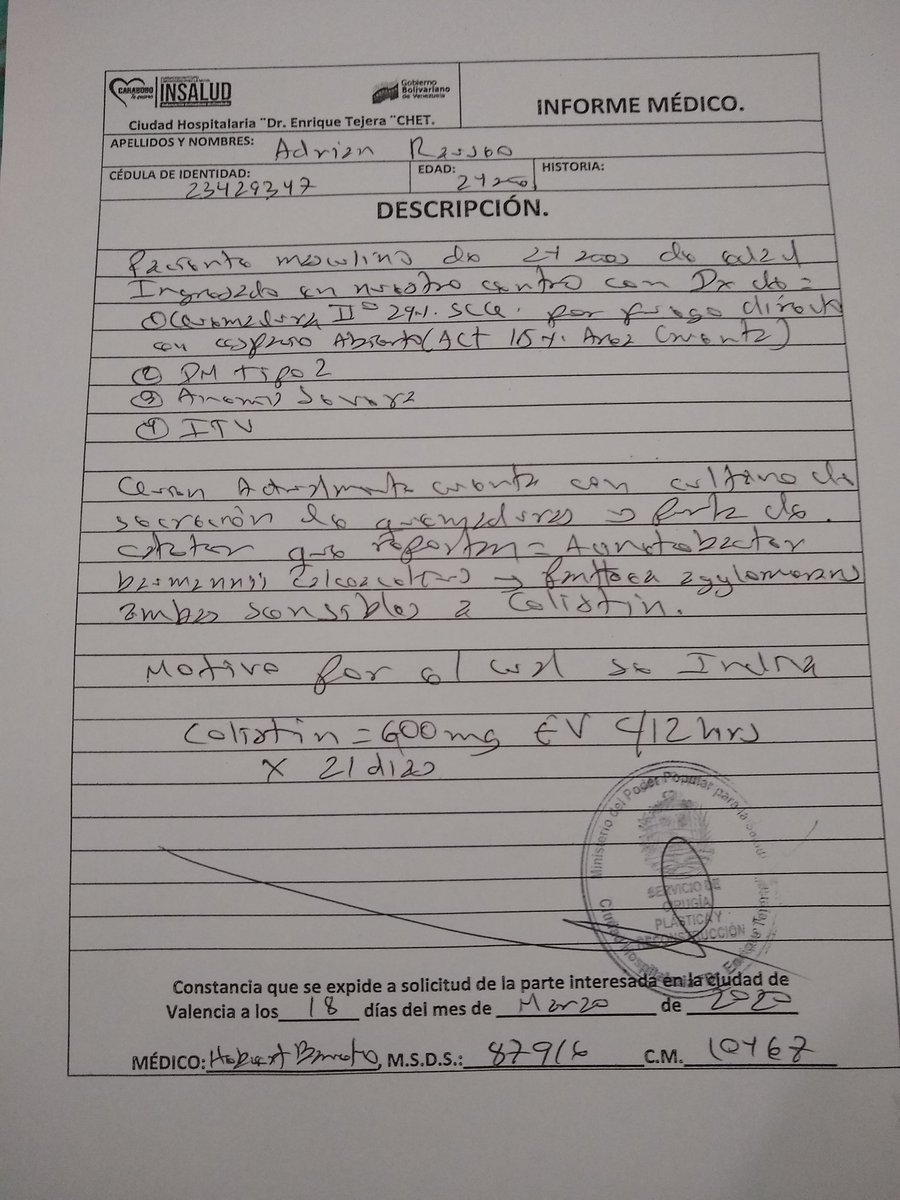 CARABOBO
INSALUD
Gobierno
Bolivariano
de Venezuela
INFORME MÉDICO.
Ciudad Hospitalaria ¨Dr. Enrique Tejera ¨CHET.
APELLIDOS Y NOMBRES: Adrian
CÉDULA DE IDENTIDAD: 23429347
EDAD:
HISTORIA:
DESCRIPCIÓN.
Paciente masculino de años de edad
Ingresado en nuestro centro con Dx de =
① Quemadura II° 29%. SCQ. por fuego directo
con Abierto (ACT 15%. Area Cruenta)
② DM tipo 2
③ Anemia Severa
④ ITU
Actualmente cuenta con cultivo de
secreción de quemaduras → punta de
cateter que reportan =
→ agglomerans
ambas sensibles a Colistin.
Motivo por el cual se Indica
Colistin = 600 mg EV c/12 hrs
x 21 dias
Ministerio del Poder Popular para la Salud
SERVICIO DE
CIRUGÍA
PLÁSTICA Y
RECONSTRUCCIÓN
Ciudad Hospitalaria "Dr. Enrique Tejera"
Constancia que se expide a solicitud de la parte interesada en la ciudad de
Valencia a los 18 días del mes de Marzo de 2020
MÉDICO: , M.S.D.S.: 87916 C.M. 10467